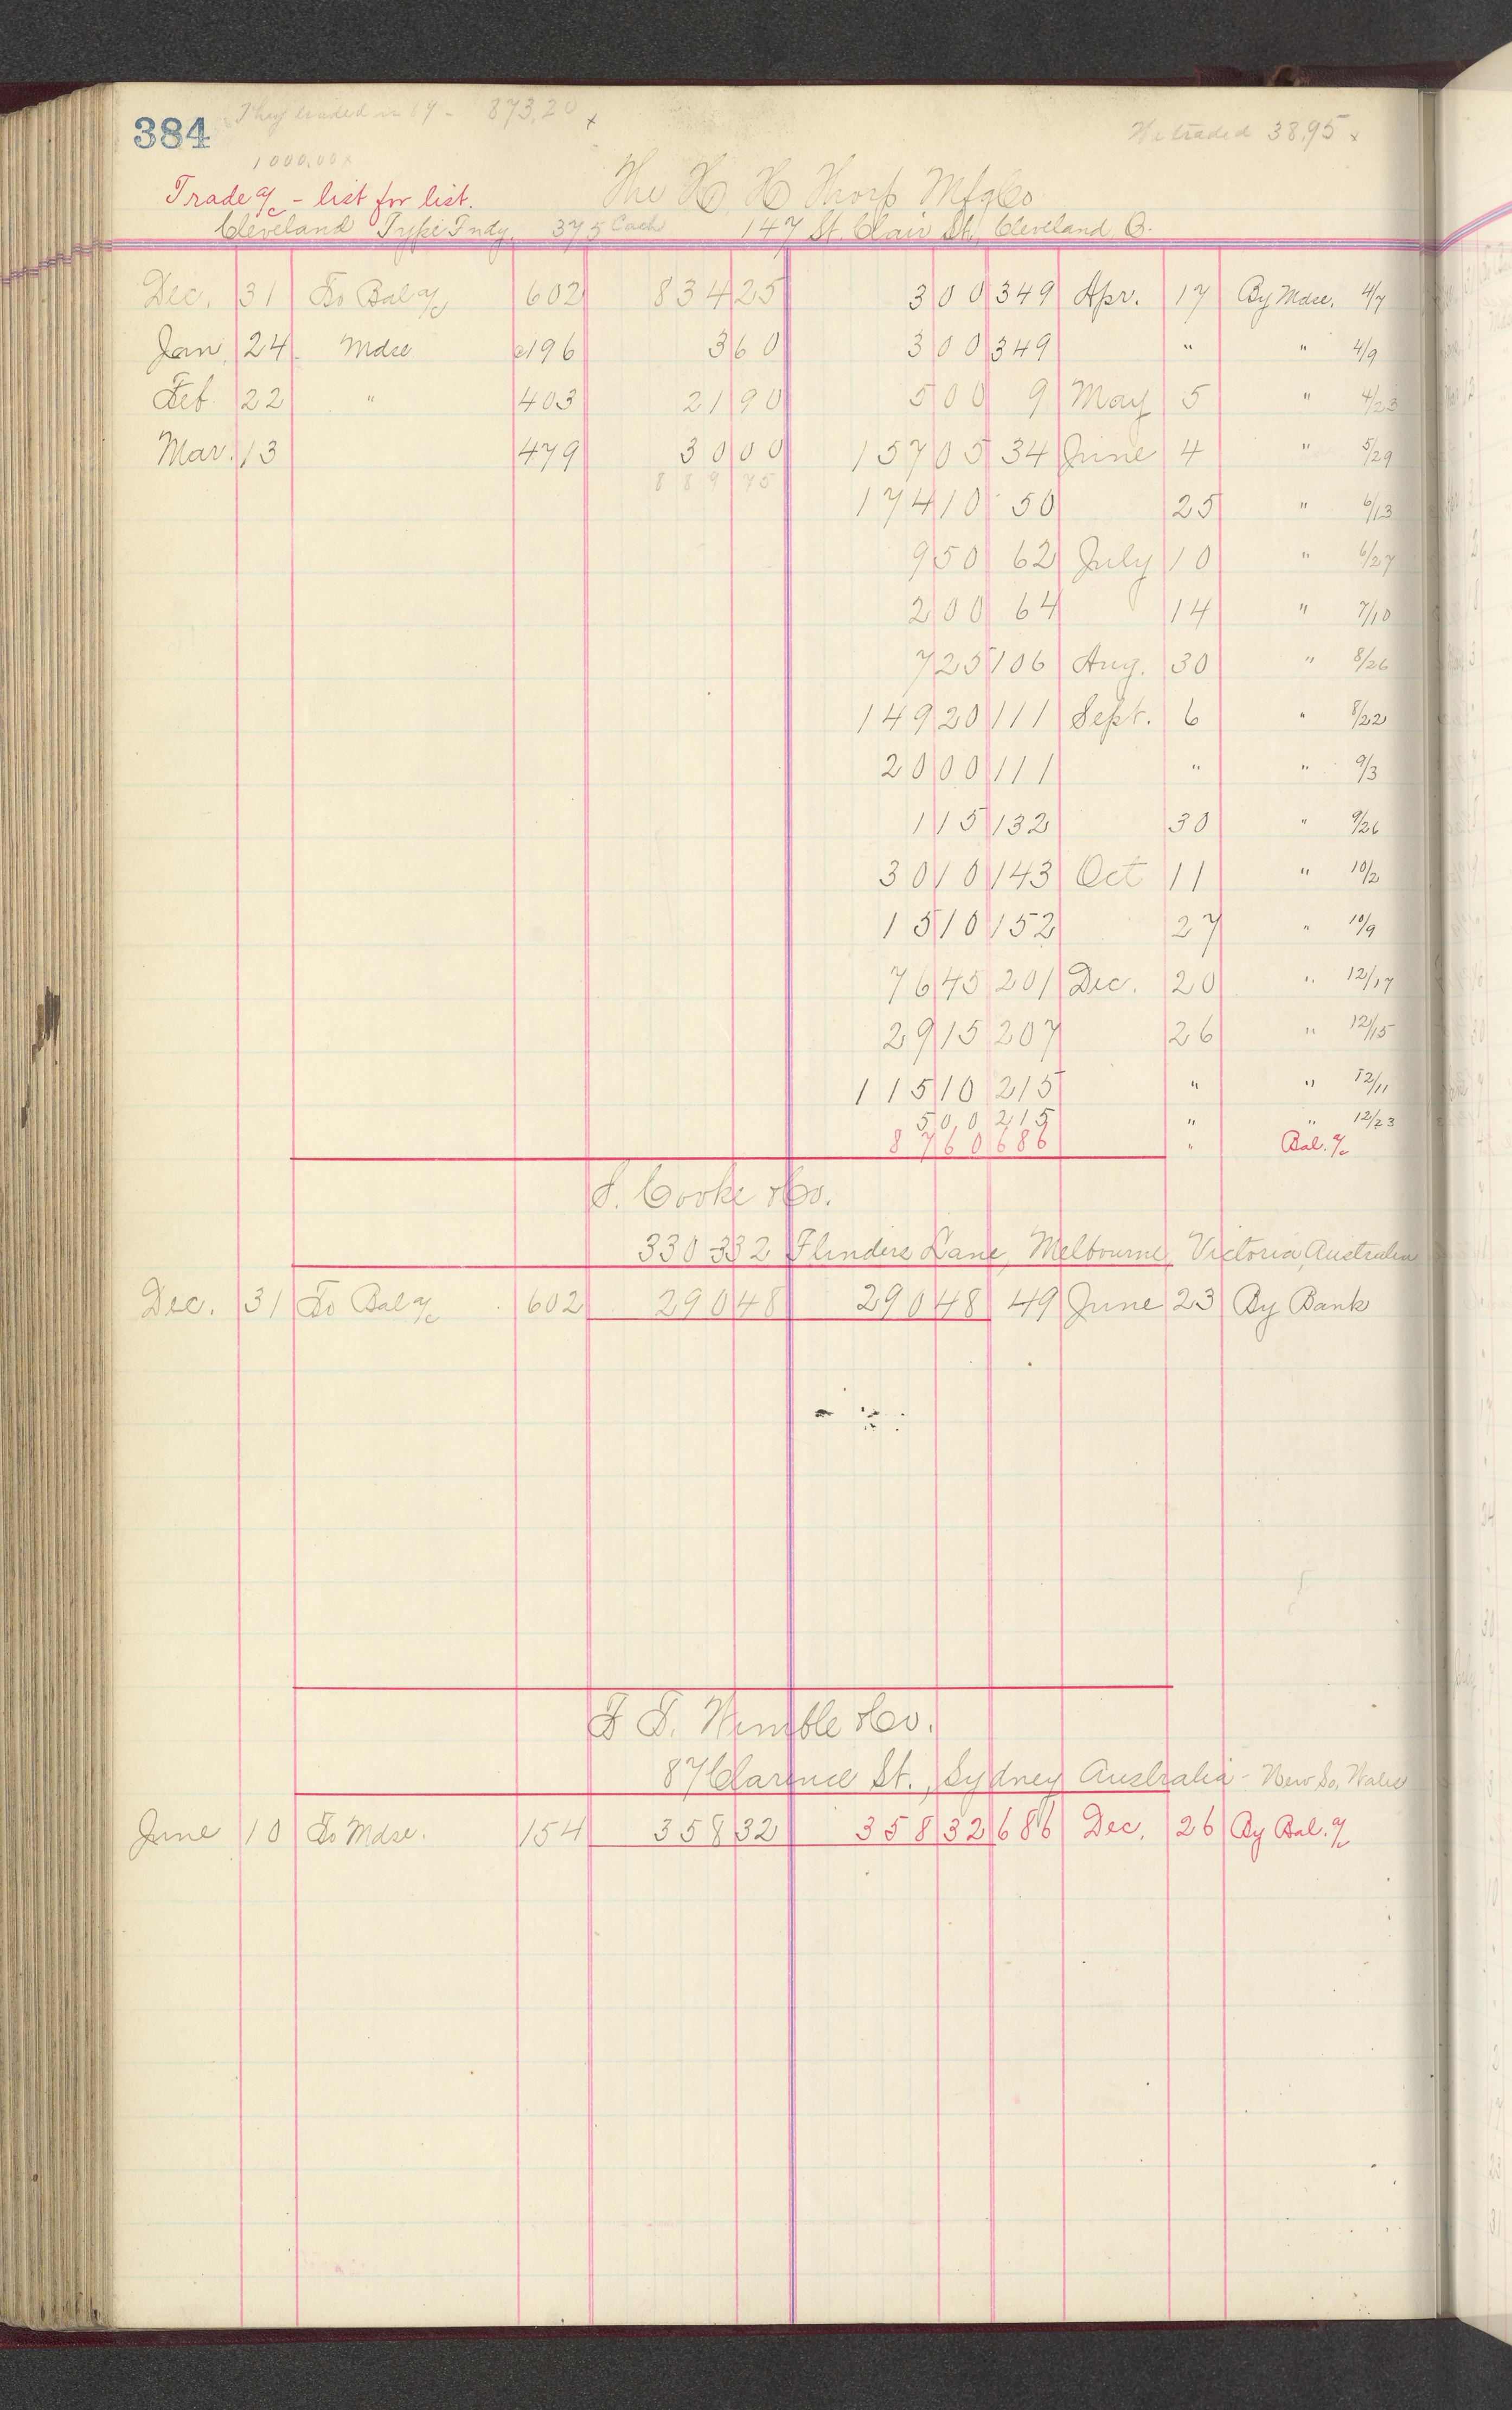 384 They traded in 89 - 873.20 x We traded 38.95 x
1000.00 x
Trade a/c - list for list. The H H Thorp Mfg Co
Cleveland Type Fndy. 375 Cash 147 St. Clair St. Cleveland, O.
Dec. 31 To Bal a/c 602 834 25 3 00 349 Apr. 17 By Mdse. 4/7
Jan 24 Mdse 196 3 60 3 00 349 " " 4/9
Feb 22 " 403 21 90 5 00 9 May 5 " 4/23
Mar. 13 479 30 00 157 05 34 June 4 " 5/29
889 75
174 10 50 25 " 6/13
9 50 62 July 10 " 6/27
2 00 64 14 " 7/10
7 25 106 Aug. 30 " 8/26
149 20 111 Sept. 6 " 8/22
20 00 111 " " 9/3
1 15 132 30 " 9/26
30 10 143 Oct 11 " 10/2
15 10 152 27 " 10/9
76 45 201 Dec. 20 " 12/17
29 15 207 26 " 12/15
115 10 215 " " 12/11
5 00 215 " " 12/23
87 60 686 " Bal. a/c
S. Cooke & Co.
330-332 Flinders Lane, Melbourne, Victoria, Australia
Dec. 31 To Bal a/c 602 290 48 290 48 49 June 23 By Bank
F T. Wimble & Co.
87 Clarence St., Sydney Australia - New So. Wales
June 10 To Mdse. 154 358 32 358 32 686 Dec. 26 By Bal. a/c